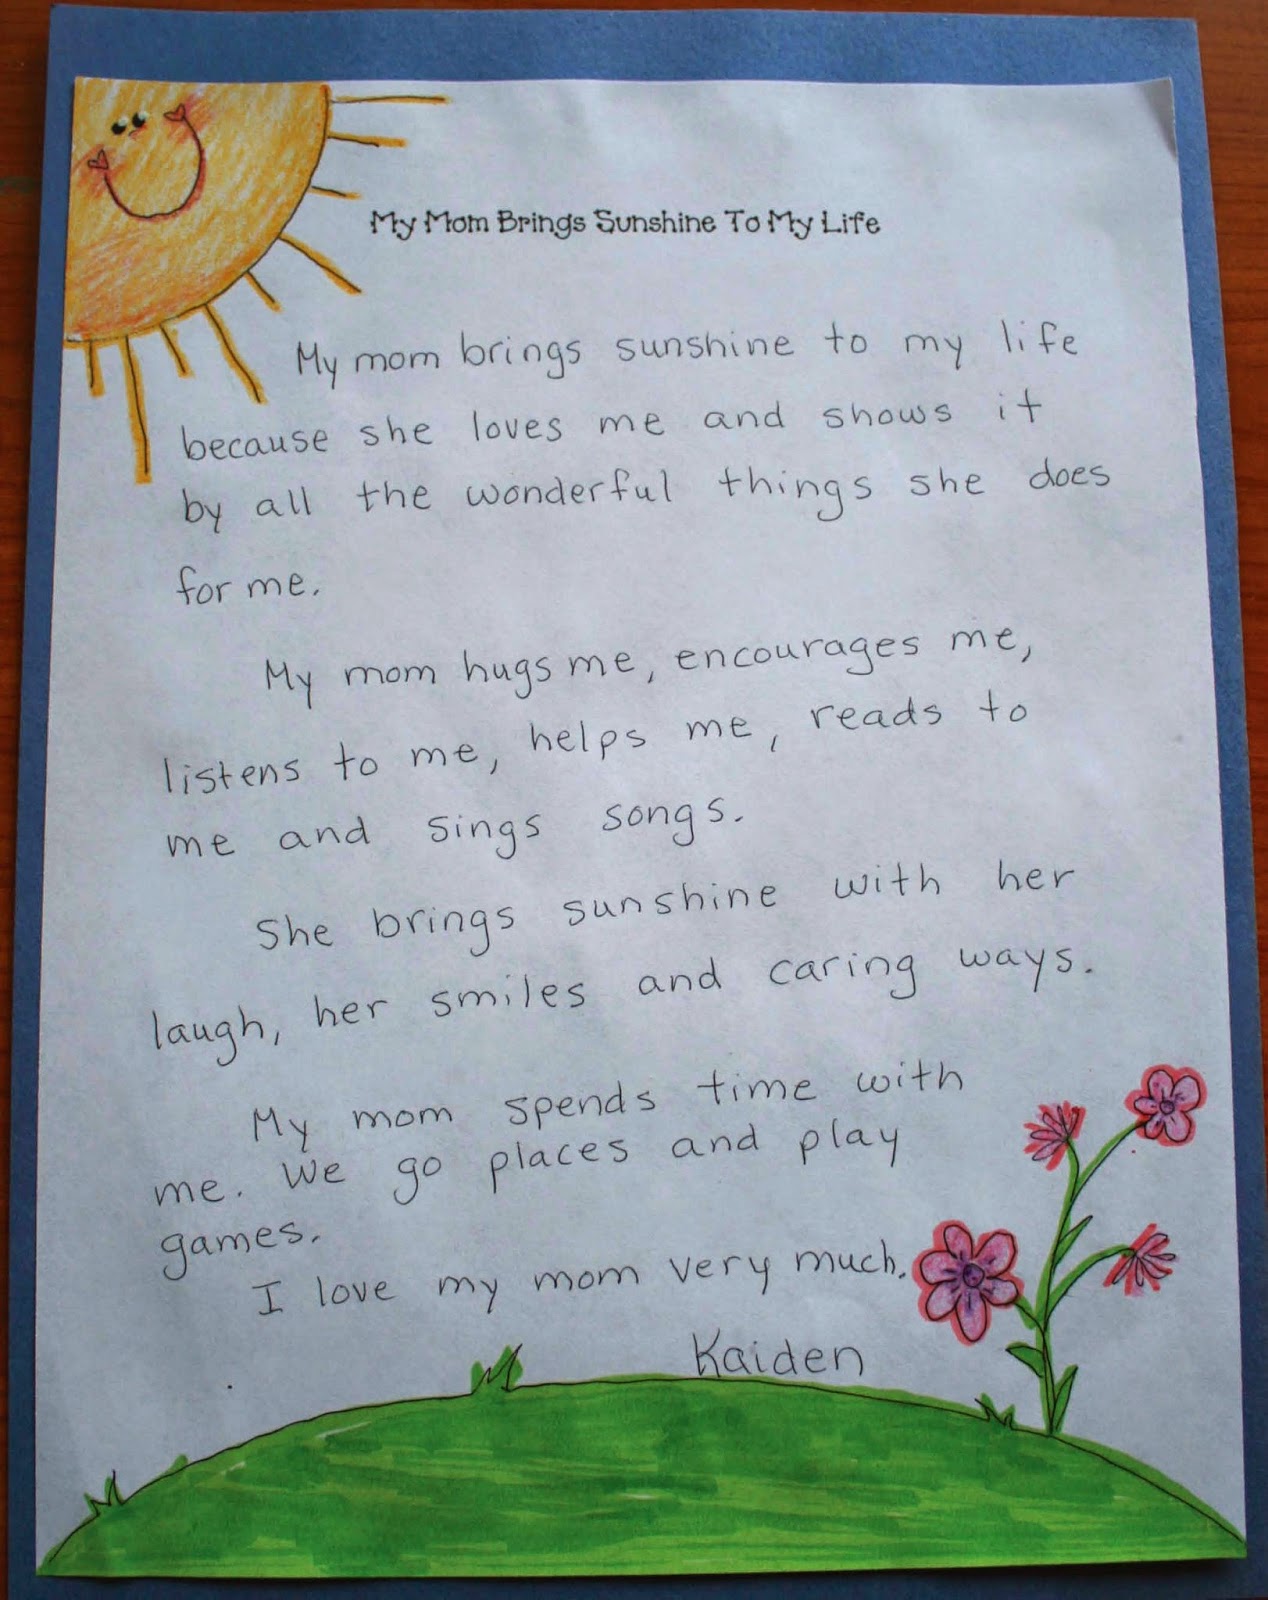 My Mom Brings Sunshine To My Life
My mom brings sunshine to my life
because she loves me and shows it
by all the wonderful things she does
for me.
My mom hugs me, encourages me,
listens to me, helps me, reads to
me and sings songs.
She brings sunshine with her
laugh, her smiles and caring ways.
My mom spends time with
me. We go places and play
games.
I love my mom very much.
Kaiden